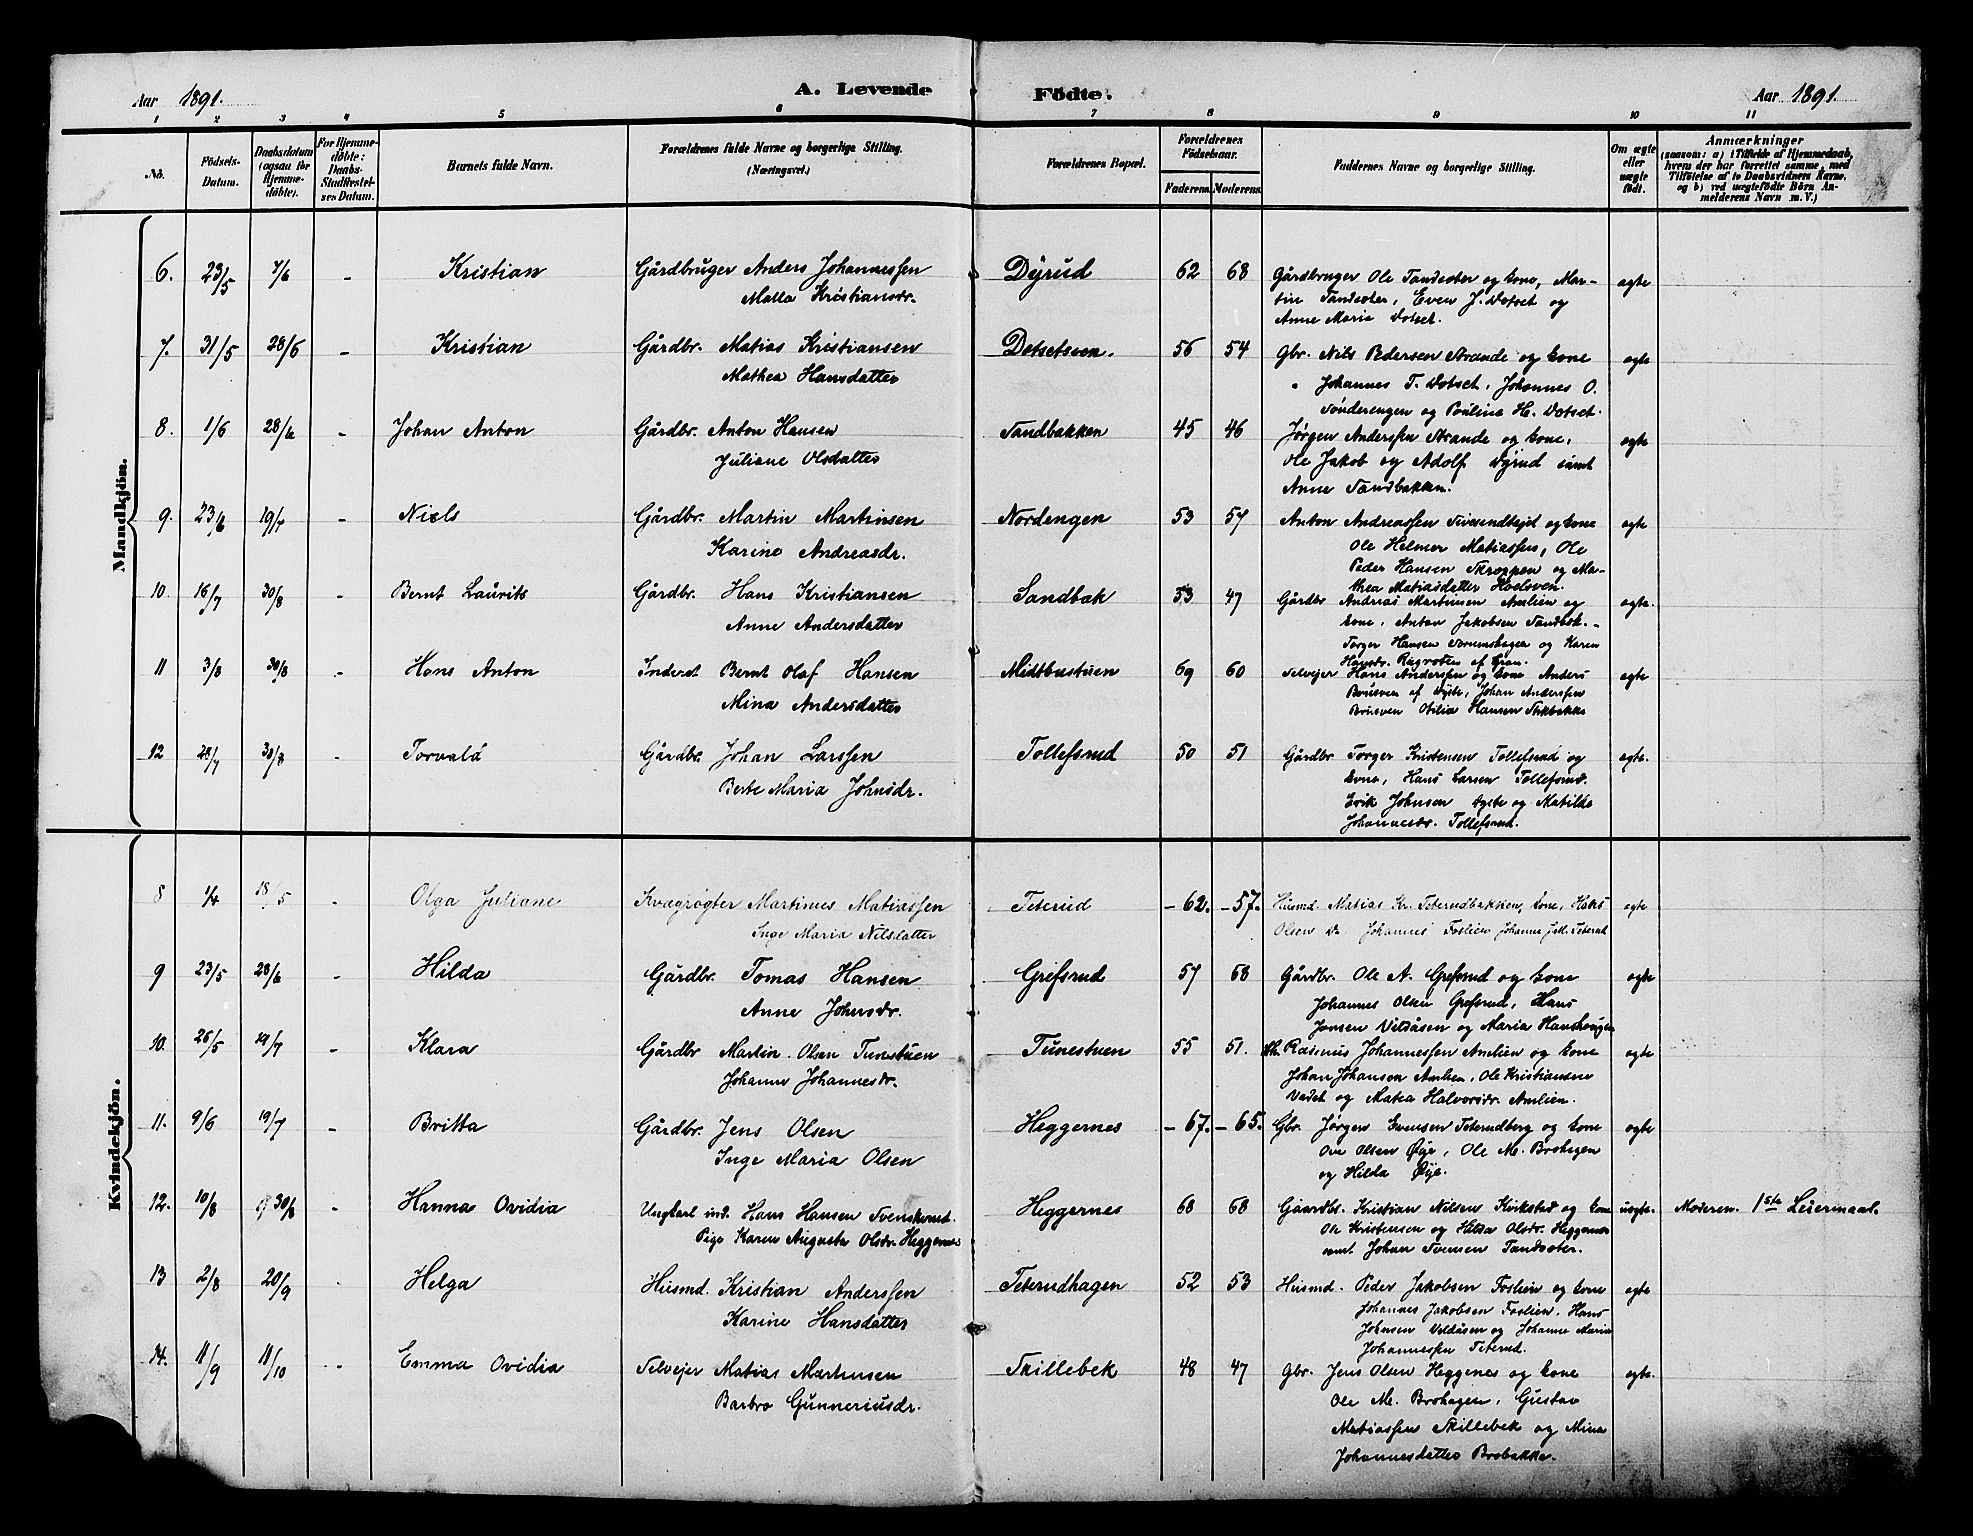 Aar 1891. A. Levende Födte. Aar 1891.
1 2 3 4 5 6 7 8 9 10 11
No. Födsels-Datum. Daabsdatum (ogsaa for Hjemmedöbte). For Hjemmedöbte: Daabs-Stadfæstelses Datum. Barnets fulde Navn. Forældrenes fulde Navne og borgerlige Stilling. (Næringsvei.) Forældrenes Bopæl. Forældrenes Födselsaar. Faderens. Moderens. Faddernes Navne og borgerlige Stilling. Om ægte eller uægte födt. Anmærkninger (saasom: a) i Tilfælde af Hjemmedaab, hvem der har forrettet samme, med Tilföielse af to Daabsvidners Navne, og b) ved uægtefödte Börn Anmelderens Navn m. V.)
Mandkjön.
6. 23/5 7/6 - Kristian Gårdbruger Anders Johannessen Dyrud 62 68 Gårdbruger Ole Sandsæter og kone, Mar-
Malla Kristiansdr. tin Sandsæter, Even J. Dotset og ægte
Anne Maria Dotset.
7. 31/5 28/6 - Kristian Gårdbr. Matias Kristiansen Dotsetsven. 56 54 Gbr. Nils Pedersen Strande og kone ægte
Mathea Hansdatter " Johannes T. Dotset, Johannes O.
Sønderengen og Paulina H. Dotset.
8. 1/6 28/6 - Johan Anton Gårdbr. Anton Hansen Sandbakken 45 46 Jørgen Anderssen Strande og kone, ægte
Juliane Olsdatter Ole Jakob og Adolf Dyrud samt
Anne Sandbakken.
9. 23/6 19/7 - Niels Gårdbr. Martin Martinsen Nordengen 53 57 Anton Andreassen og kone ægte
Karine Andreasdr. Ole Helmer Matiassen, Ole
Peder Hansen og Ma-
thea Matiasdatter
10. 16/7 30/8 - Bernt Laurits Gårdbr. Hans Kristiansen Sandbæk 53 47 Gårdbr Andreas Martinsen Amlien og ægte.
Anne Andersdatter kone, Anton Jakobsen Sandbæk.
Torger Hansen og Karen
Hansdr. af Gran.
11 3/8 30/8 - Hans Anton Inderst Bernt Olaf Hansen Midtbustuen 69 60 Selvejer Hans Anderssen og kone Anders ægte
Mina Andersdatter Brusven af Dyste, Johan Anderssen
Brusven Otilia Hansen
12 28/7 30/8 - Torvald Gårdbr. Johan Larssen Tollefsrud 50 51 Gårdbr Torger Kristensen Tollefsrud og ægte.
Berte Maria Johnsdr. kone, Hans Larsen Tollefsrud.
Erik Johnsen Dyste og Matilde
Johannesdr. Tollefsrud.
Kvindekjön.
8 1/4 18/5 - Olga Juliane Kvægrøgter Martinus Matiassen Teterud - 62. - 57. Husmd. Matias Kr. Teterudbakken, kone, Hans ægte
Inge Maria Nilsdatter Olsen Do Johannes Foslien Johanne Teterud
9 23/5 28/6 - Hilda Gårdbr. Tomas Hansen Grefsrud 57 68 Gårdbr. Ole A. Grefsrud og kone ægte
Anne Johnsdr. Johannes Olsen Grefsrud, Hans
Jonsen Veldåsen og Maria Hanshaugen
10. 26/5 19/7 - Klara Gårdbr Martin Olsen Tunestuen Tunestuen 55 51. Rasmus Johannessen Amlien og kone ægte
Johanne Johannesdr. Johan Johansen Amlien, Ole Kristiansen
og Matea Halvorsdr. Amlien.
11. 9/6 19/7 - Britta Gårdbr. Jens Olsen Heggernes - 67. - 65. Gbr. Jørgen Evensen Teterudberg og kone ægte
Inge Maria Olsen Ove Olsen Øye, Ole M. Brohagen
og Hilda Øye.
12. 10/8 30/8 - Hanna Ovidia Ungkarl ind. Hans Hansen Heggernes 68 68 Gaardbr. Kristian Nilsen Kirkstad og kone uægte Moderen. 1ste Leiermaal.
Pige Karen Augusta Olsdr. Heggernes Ole Kristensen og Hilda Olsdr. Heggernes
samt Johan Svensen Sandsæter.
13 2/8 20/9 Helga Husmd. Kristian Anderssen Teterudhagen 52 53 Husmd. Peder Jakobsen Foslien og kone ægte
Karine Hansdatter Johannes Jakobsen Foslien, Hans
Johnsen Veldåsen og Johanne Maria
Johannessen Teterud.
14. 11/9 11/10 - Emma Ovidia Selvejer Matias Martinsen Skillebek 48 47 Gbr. Jens Olsen Heggenes og kone ægte.
Barbro Gunneriusdr. Ole M. Brohagen, Gustav
Matiassen Skillebek og Mina
Johannesdatter Brobakke.